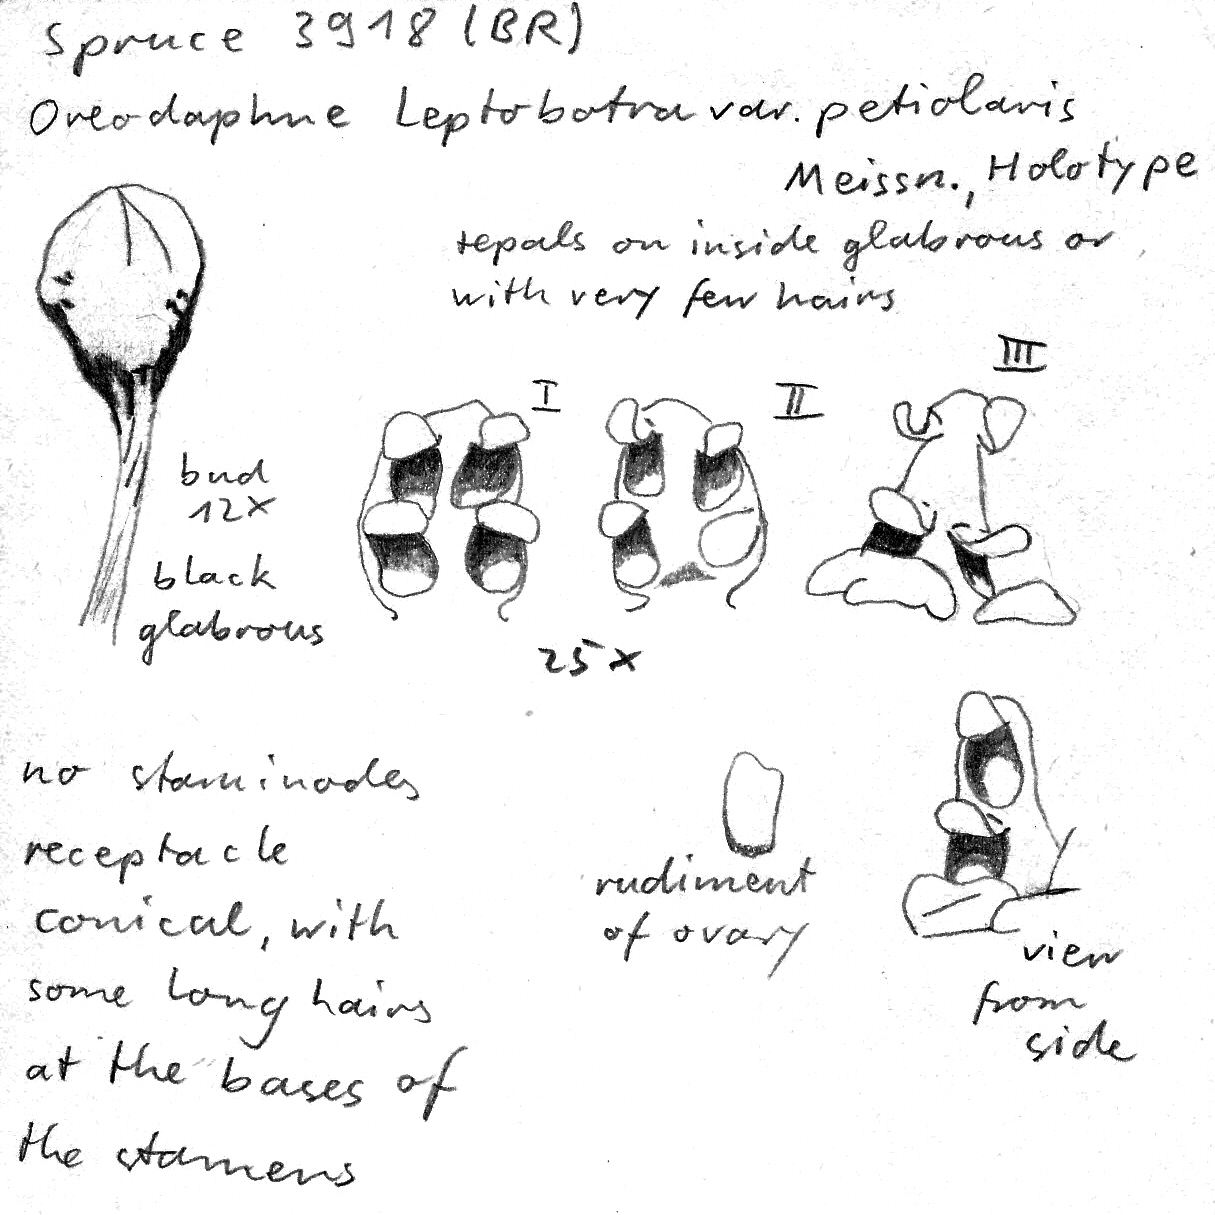 Spruce 3918 (BR)
Oreodaphne Leptobotra var. petiolaris
Meissn., Holotype
tepals on inside glabrous or
with very few hairs
I
II
III
bud
12x
black
glabrous
25x
no staminodes
receptacle
conical, with
some long hairs
at the bases of
the stamens
rudiment
of ovary
view
from
side